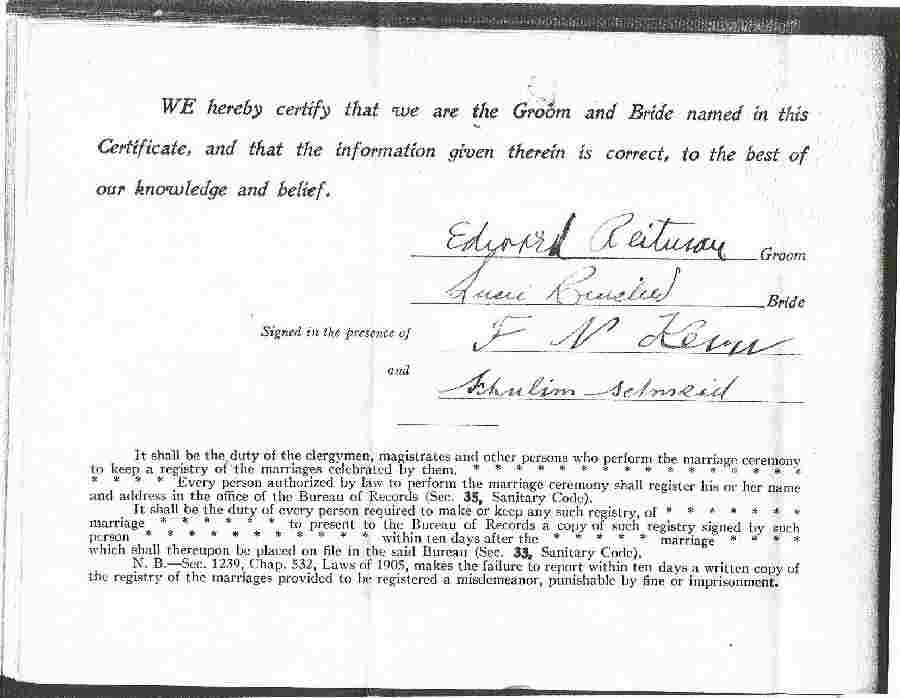 WE hereby certify that we are the Groom and Bride named in this
Certificate, and that the information given therein is correct, to the best of
our knowledge and belief.
Edward Reitman Groom
Bride
Signed in the presence of F N
and
Schulim Schmeid
It shall be the duty of the clergymen, magistrates and other persons who perform the marriage ceremony
to keep a registry of the marriages celebrated by them. * * * * * * * * * * * * * *
* * * * Every person authorized by law to perform the marriage ceremony shall register his or her name
and address in the office of the Bureau of Records (Sec. 35, Sanitary Code).
It shall be the duty of every person required to make or keep any such registry, of * * * * * * *
marriage * * * * * * to present to the Bureau of Records a copy of such registry signed by such
person * * * * * * * * * * * within ten days after the * * * * * marriage * * * *
which shall thereupon be placed on file in the said Bureau (Sec. 33, Sanitary Code).
N. B.—Sec. 1239, Chap. 532, Laws of 1905, makes the failure to report within ten days a written copy of
the registry of the marriages provided to be registered a misdemeanor, punishable by fine or imprisonment.